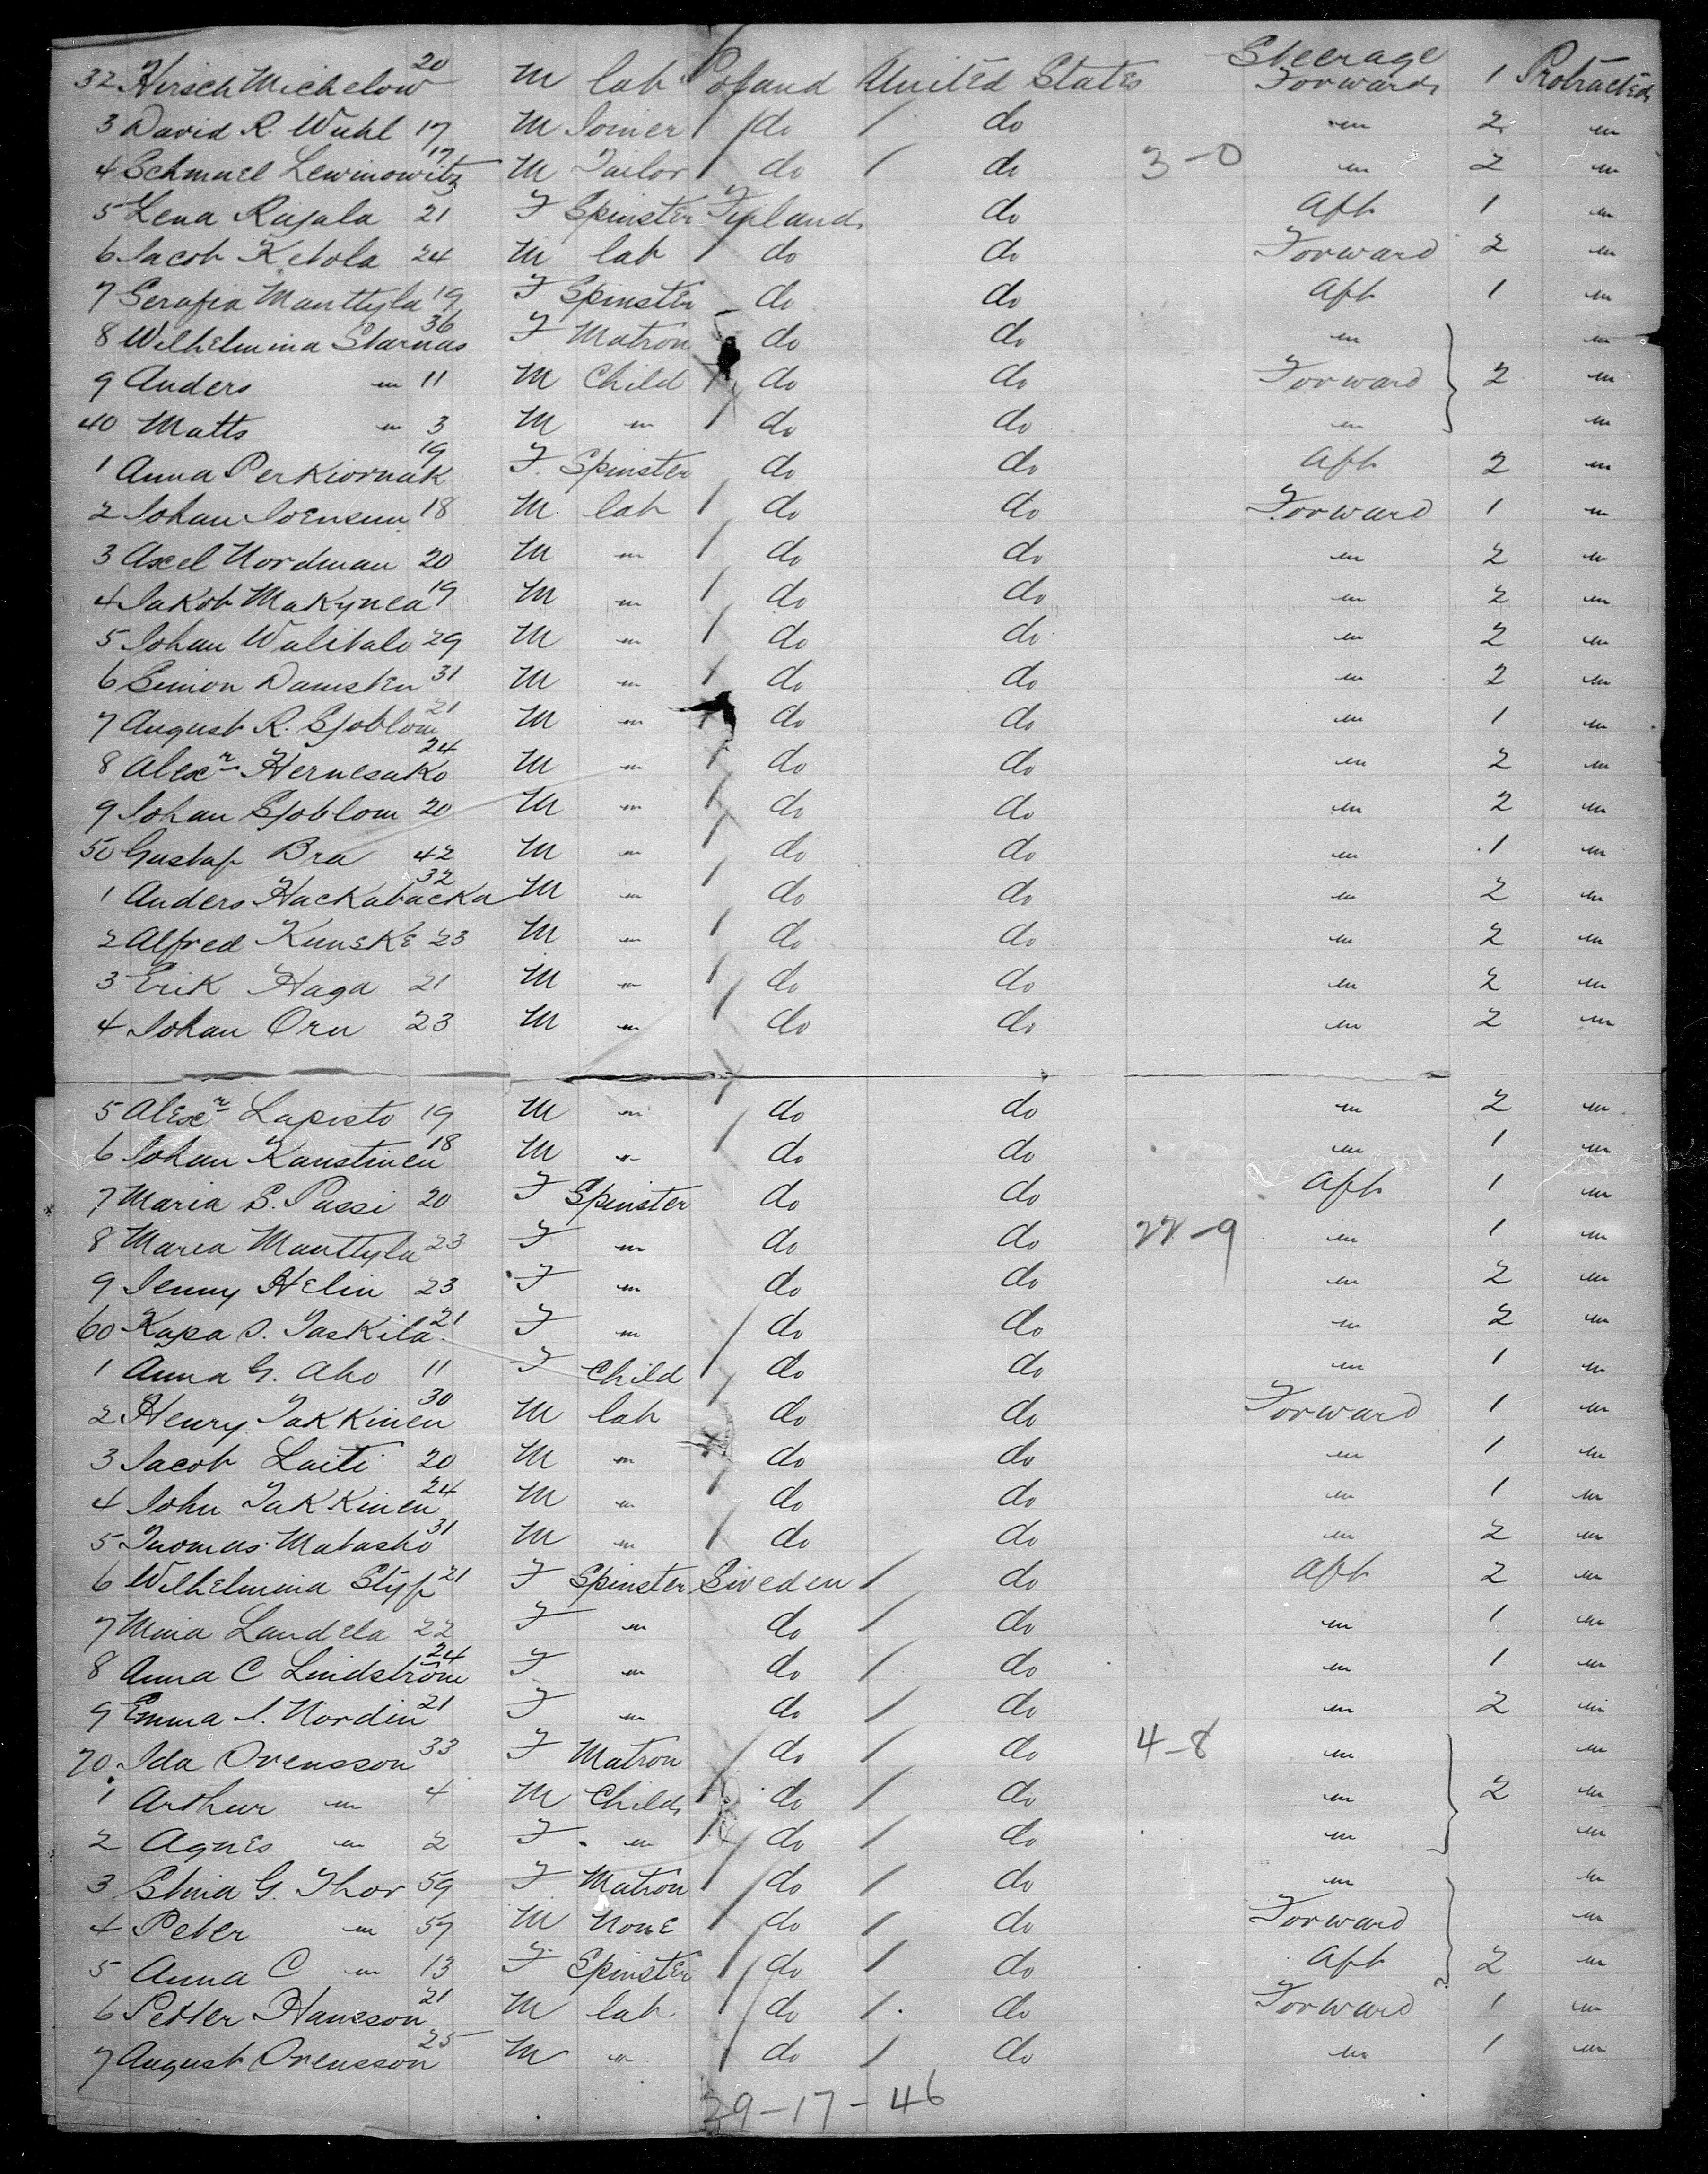 Steerage
32 Hirsch Michelow 20 M lab Poland United States Forwards 1 Protracted
3 David R. Wuhl 17 M Joiner do do " 2 "
4 Schmuel Lewinowitz 17 M Tailor do do 3-0 " 2 "
5 Lena Rajala 21 F Spinster Finland do Aft 1 "
6 Jacob Ketola 24 M lab do do Forward 2 "
7 Serafia Manttyla 19 F Spinster do do Aft 1 "
8 Wilhelmina Starnas 36 F Matron do do " "
9 Anders " 11 M Child do do Forward 2 "
40 Matts " 3 M " do do " "
1 Anna Perkiornak 19 F Spinster do do Aft 2 "
2 Johan Joensuu 18 M lab do do Forward 1 "
3 Axel Nordman 20 M " do do " 2 "
4 Jakob Makynea 19 M " do do " 2 "
5 Johan Walitalo 29 M " do do " 2 "
6 Simon Damsten 31 M " do do " 2 "
7 August R. Sjoblom 21 M " do do " 1 "
8 Alexr Hernesako 24 M " do do " 2 "
9 Johan Sjoblom 20 M " do do " 2 "
50 Gustaf Bra 42 M " do do " 1 "
1 Anders Hackabacka 32 M " do do " 2 "
2 Alfred Kunske 23 M " do do " 2 "
3 Erik Haga 21 M " do do " 2 "
4 Johan Oru 23 M " do do " 2 "
5 Alexr Lapisto 19 M " do do " 2 "
6 Johan Kanstinen 18 M " do do " 1 "
7 Maria S. Passi 20 F Spinster do do Aft 1 "
8 Maria Manttyla 23 F " do do 22-9 " 1 "
9 Jenny Helin 23 F " do do " 2 "
60 Kajsa S. Taskila 21 F " do do " 2 "
1 Anna G. Aho 11 F Child do do " 1 "
2 Henry Jakkinen 30 M lab do do Forward 1 "
3 Jacob Laiti 20 M " do do " 1 "
4 John Jakkinen 24 M " do do " 1 "
5 Thomas Matasho 31 M " do do " 2 "
6 Wilhelmina Styf 21 F Spinster Sweden do Aft 2 "
7 Mina Landela 22 F " do do " 1 "
8 Anna C Lindström 24 F " do do " 1 "
9 Emma J. Nordin 21 F " do do " 2 "
70 Ida Ovensson 33 F Matron do do 4-8 " "
1 Arthur " 4 M Child do do " 2 "
2 Agnes " 2 F " do do " "
3 Stina G. Thor 59 F Matron do do " "
4 Peter " 57 M None do do Forward "
5 Anna C " 13 F Spinster do do Aft 2 "
6 Petter Hansson 21 M lab do do Forward 1 "
7 August Ovensson 25 M " do do " 1 "
29-17-46